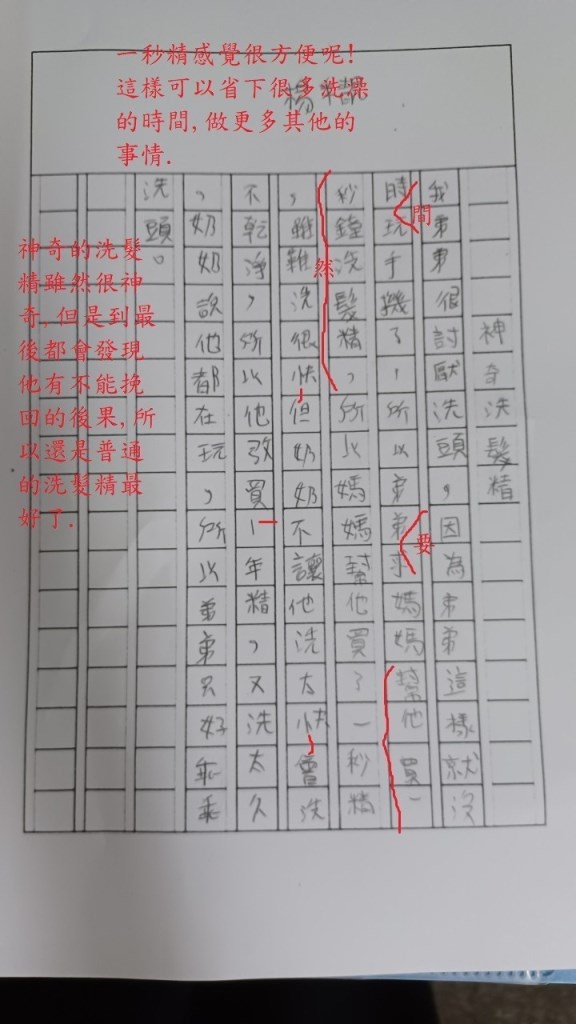 一秒精感覺很方便呢!
這樣可以省下很多洗澡
的時間,做更多其他的
事情.
神奇洗髮精
我弟弟很討厭洗頭，因為弟弟這樣就沒
時玩手機了，所以弟弟求媽媽幫他買一
間
要
秒鐘洗髮精，所以媽媽幫他買了一秒精
，雖難洗很快但奶奶不讓他洗太快會洗
然
，
，
不乾淨，所以他改買1年精，又洗太久
一
，奶奶說他都在玩，所以弟弟只好乖乖
洗頭。
神奇的洗髮
精雖然很神
奇,但是到最
後都會發現
他有不能挽
回的後果,所
以還是普通
的洗髮精最
好了.